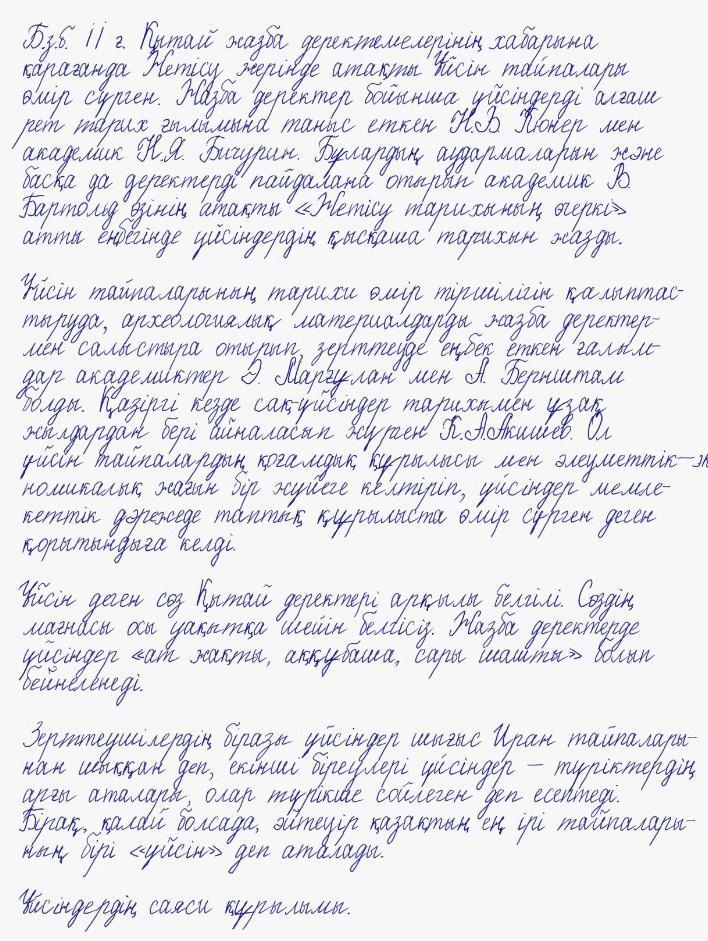 Б.з.б. II г. Қытай жазба деректемелерінің хабарына
қарағанда Жетісу жерінде атақты Үйсін тайпалары
өмір сүрген. Жазба деректер бойынша үйсіндерді алғаш
рет тарих ғылымына таныс еткен Н.В. Кюнер мен
академик Н.Я. Бичурин. Бұлардың аудармаларын және
басқа да деректерді пайдалана отырып академик В.
Бартольд өзінің атақты «Жетісу тарихының очеркі»
атты еңбегінде үйсіндердің қысқаша тарихын жазды.

Үйсін тайпаларының тарихи өмір тіршілігін қалыптас-
тыруда, археологиялық материалдарды жазба деректер-
мен салыстыра отырып, зерттеуде еңбек еткен ғалым-
дар академиктер Ә. Марғұлан мен А. Бернштам
болды. Қазіргі кезде сақ-үйсіндер тарихымен ұзақ
жылдардан бері айналасып жүрген К.А.Акишев. Ол
үйсін тайпалардың қоғамдық құрылысы мен әлеуметтік-эк
номикалық жағын бір жүйеге келтіріп, үйсіндер мемле-
кеттік дәрежеде таптық құрылыста өмір сүрген деген
қорытындыға келді.

Үйсін деген сөз Қытай деректері арқылы белгілі. Сөздің
мағнасы осы уақытқа шейін белгісіз. Жазба деректерде
үйсіндер «ат жақты, аққұбаша, сары шашты» болып
бейнеленеді.

Зерттеушілердің біразы үйсіндер шығыс Иран тайпалары-
нан шыққан деп, екінші біреулері үйсіндер – түріктердің
арғы аталары, олар түрікше сөйлеген деп есептеді.
Бірақ, қалай болсада, әйтеуір қазақтың ең ірі тайпалары-
ның бірі «үйсін» деп аталады.

Үйсіндердің саяси құрылымы.